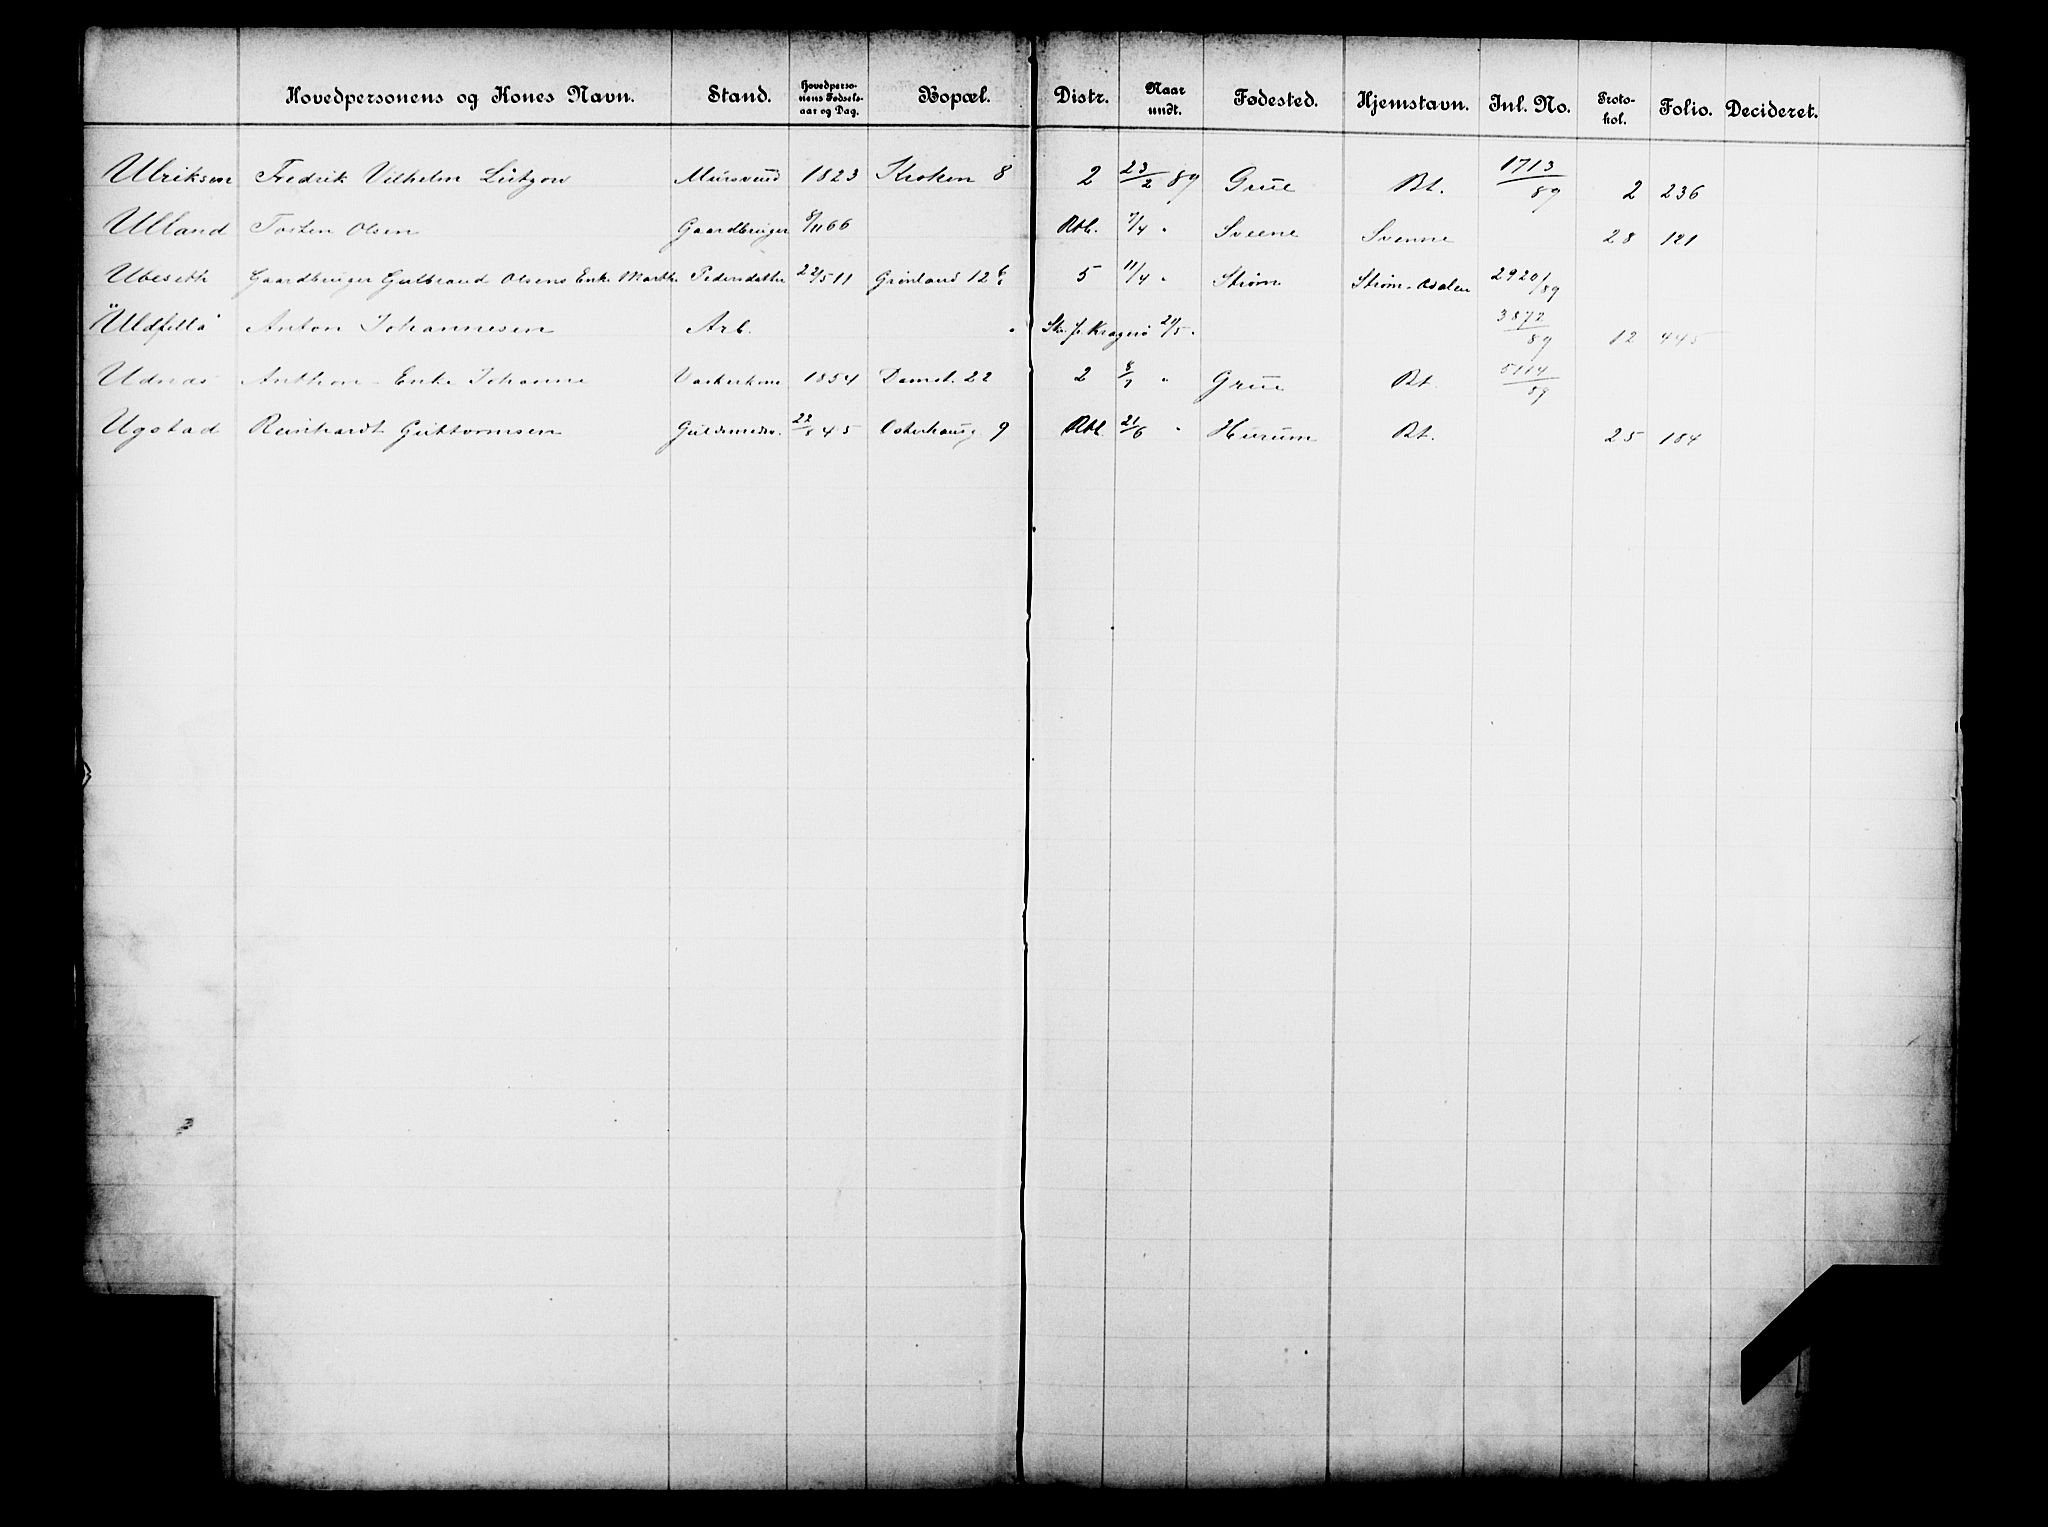 Hovedpersonens og Kones Navn. Stand. Hovedperso-nens Fødsels-aar og Dag. Bopæl. Distr. Naar undt. Fødested. Hjemstavn. Inl. No. Proto-kol. Folio. Decideret.
Ulriksen Fredrik Vilhelm Lützow Mursvend 1823 Kroken 8 2 23/2 89 Grue Bt. 1713/89 2 236
Ulland Tosten Olsen Gaardbruger 8/11 66 Rbl. 7/4 " Sveene Svenne 28 121
Ubeseth Gaardbruger Gulbrand Olsens Enke Marthe Pedersdatter 22/5 11 Grønland 12 5 11/4 " Strøm Strøm-Odalen 2920/89
"Uldfilla" Anton Johannesen Arb. Kragerø 21/5 " 3872/89 12 445
Udnæs Anthon Enke Johanne Vaskerkone 1854 Damst. 22 2 8/7 " Grue Bt. 5114/89
Ugstad Reinhardt Guttormsen Guldsmedsv. 45 Osterhausg. 9 Rbl. 21/6 " Hurum Bt. 25 184